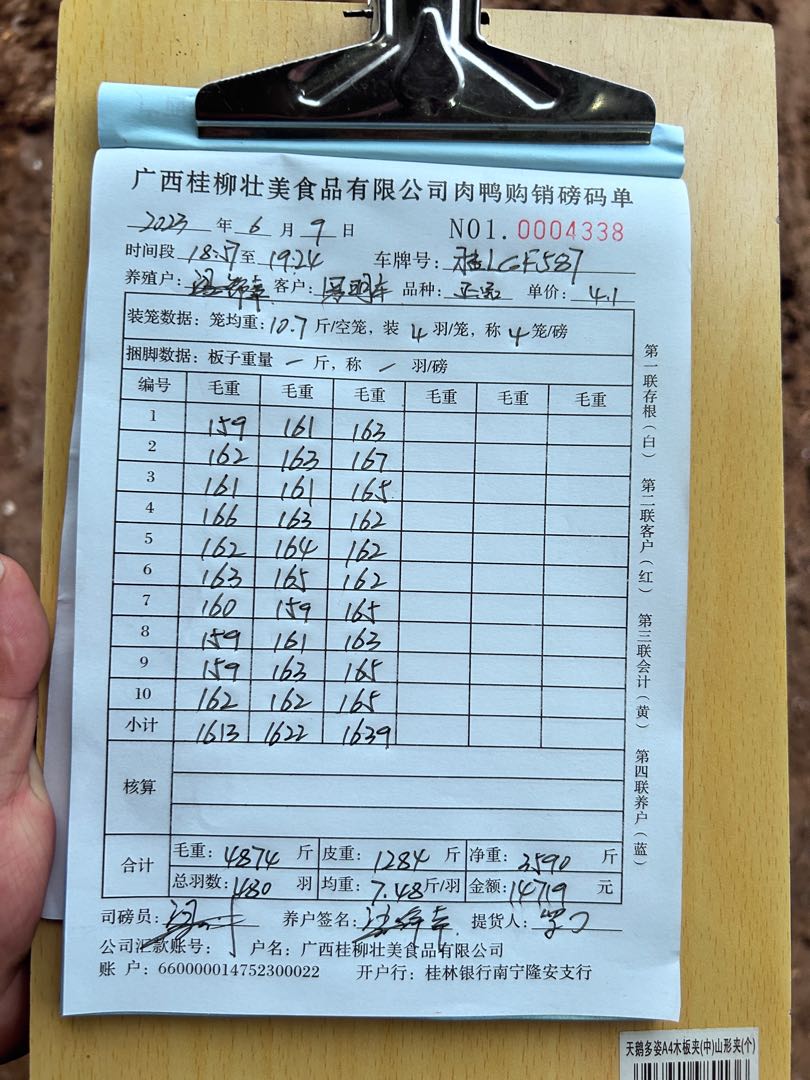 广西桂柳壮美食品有限公司肉鸭购销磅码单
2023 年 6 月 9 日 NO1. 0004338
时间段 18:57 至 19:24 车牌号: 桂LGF587
养殖户: 客户: 品种: 正品 单价: 4.1
装笼数据: 笼均重: 10.7 斤/空笼, 装 4 羽/笼, 称 4 笼/磅
捆脚数据: 板子重量 — 斤, 称 — 羽/磅
编号 毛重 毛重 毛重 毛重 毛重 毛重
1 159 161 163
2 162 163 167
3 161 161 165
4 166 163 162
5 162 164 162
6 163 165 162
7 160 159 165
8 159 161 163
9 159 163 165
10 162 162 165
小计 1613 1622 1639
核算
合计 毛重: 4874 斤 皮重: 1284 斤 净重: 3590 斤
总羽数: 480 羽 均重: 7.48 斤/羽 金额: 14719 元
司磅员: 养户签名: 提货人:
公司汇款账号: 户名: 广西桂柳壮美食品有限公司
账 户: 660000014752300022 开户行: 桂林银行南宁隆安支行
第一联存根(白) 第二联客户(红) 第三联会计(黄) 第四联养户(蓝)
天鹅多姿A4木板夹(中)山形夹(个)